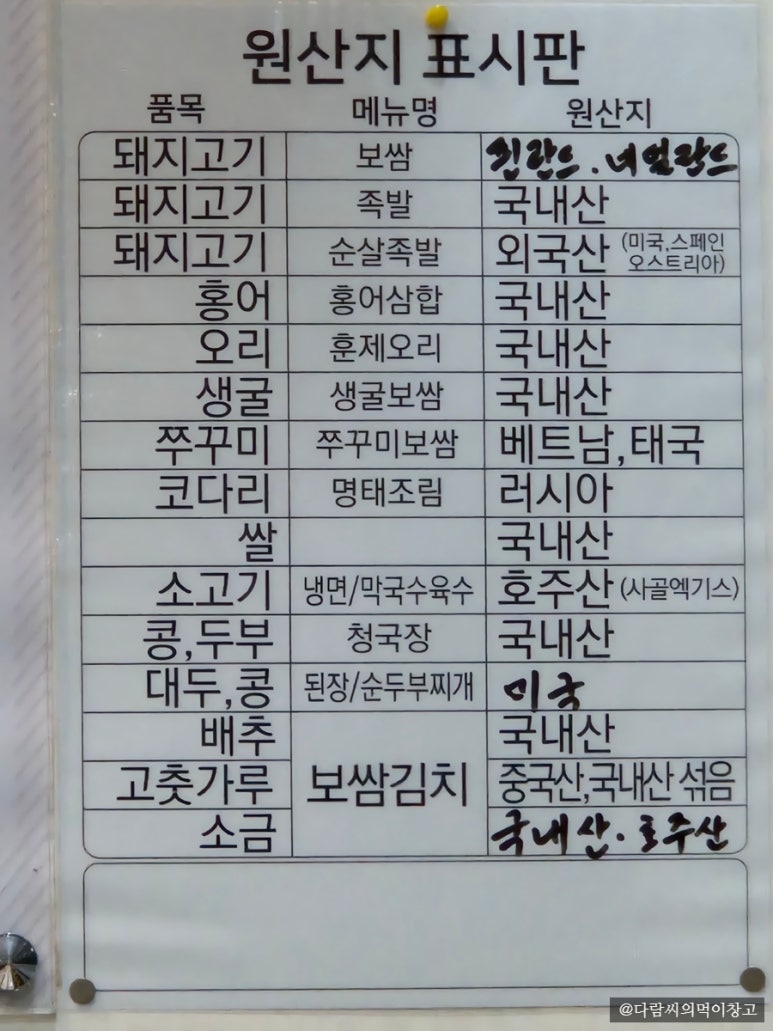 원산지 표시판
품목 메뉴명 원산지
돼지고기 보쌈 핀란드. 네덜란드
돼지고기 족발 국내산
돼지고기 순살족발 외국산 (미국,스페인
오스트리아)
홍어 홍어삼합 국내산
오리 훈제오리 국내산
생굴 생굴보쌈 국내산
쭈꾸미 쭈꾸미보쌈 베트남,태국
코다리 명태조림 러시아
쌀 국내산
소고기 냉면/막국수육수 호주산 (사골엑기스)
콩,두부 청국장 국내산
대두,콩 된장/순두부찌개 미국
배추 국내산
고춧가루 보쌈김치 중국산,국내산 섞음
소금 국내산. 호주산
@다람씨의먹이창고